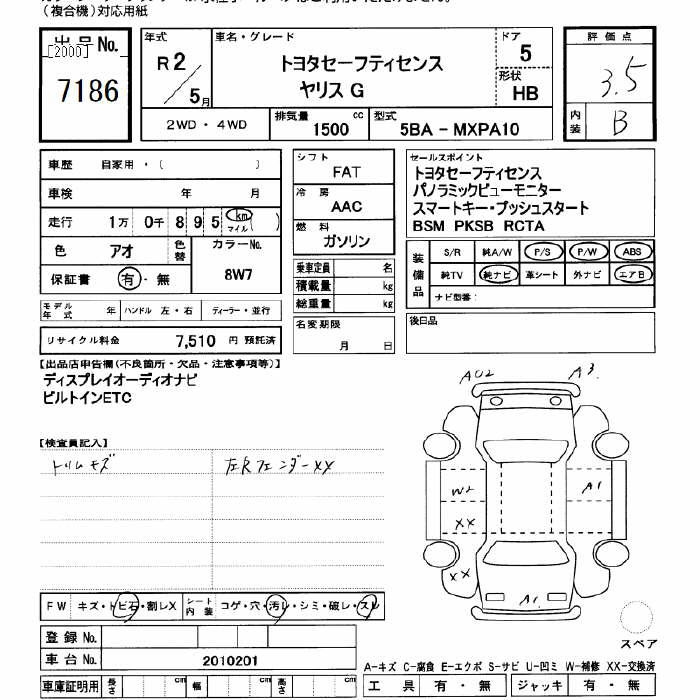 （複合機）対応用紙
出品No.
[2000]
7186
年式
R2/5月
車名・グレード
トヨタセーフティセンス
ヤリス G
ドア
5
形状
HB
評価点
3.5
内装
B
2WD・4WD
排気量
1500 cc
型式
5BA - MXPA10
車歴 自家用・（ ）
車検 年 月
走行 1万 0千 8 9 5 km マイル ( )
色 アオ
色替
カラーNo.
8W7
保証書 有・無
モデル年式 年
ハンドル 左・右
ディーラー・並行
リサイクル料金 7,510 円 預託済
シフト
FAT
冷房
AAC
燃料
ガソリン
乗車定員 名
積載量 kg
総重量 kg
名変期限
月 日
セールスポイント
トヨタセーフティセンス
パノラミックビューモニター
スマートキー・プッシュスタート
BSM PKSB RCTA
装備品
S/R 純A/W P/S P/W ABS
純TV 純ナビ 革シート 外ナビ エアB
ナビ型番：
後日品
【出品店申告欄(不良箇所・欠品・注意事項等)】
ディスプレイオーディオナビ
ビルトインETC
【検査員記入】
トリムキズ
左Rフェンダーxx
AU2
A3
W2
A1
XX
XX
A1
スペア
FW キズ・トビ石・割レX
シート内装 コゲ・穴・汚レ・シミ・破レ・スレ
登録 No.
車台 No. 2010201
車庫証明用 長さ cm 幅 cm 高さ cm
A-キズ C-腐食 E-エクボ S-サビ U-凹ミ W-補修 XX-交換済
工具 有・無 ジャッキ 有・無